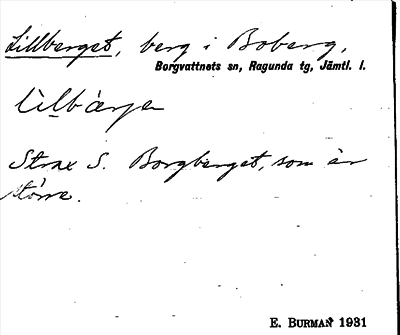 Lillberget, berg i Boberg,
Borgvattnets sn, Ragunda tg, Jämtl. l.
Strax S. Borgberget, som är
större.
E. BURMAN 1931